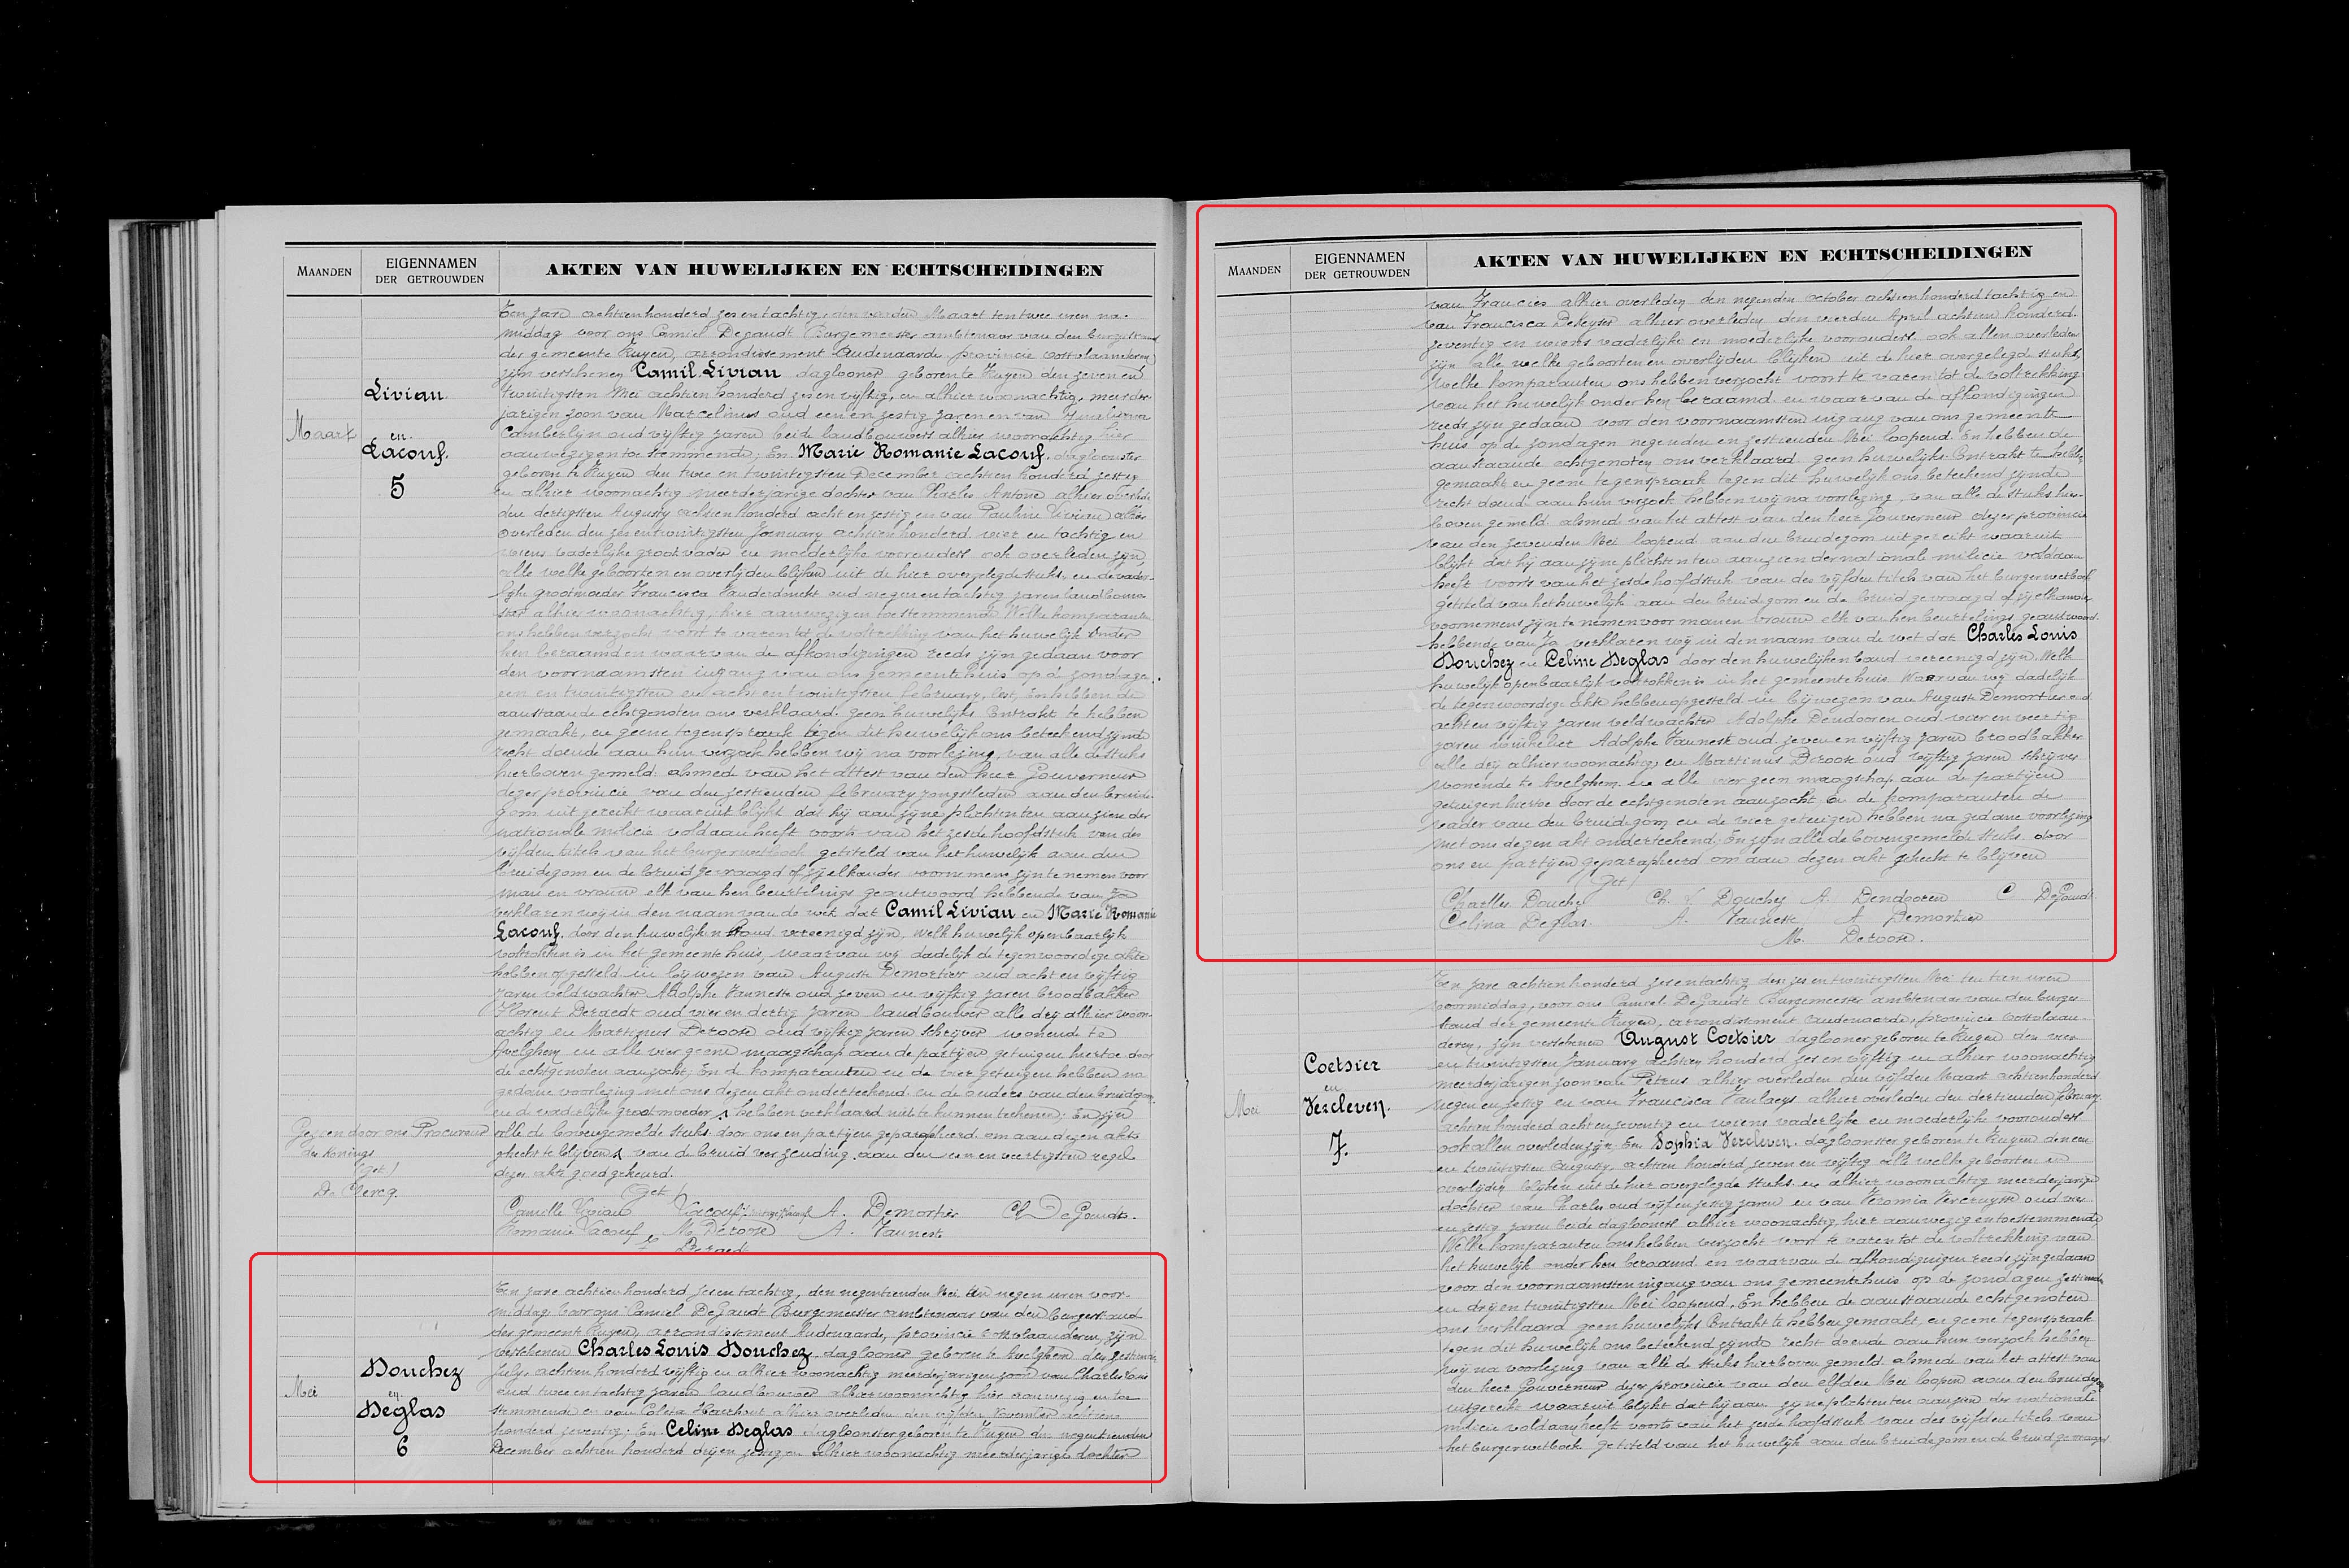 MAANDEN
EIGENNAMEN
DER GETROUWDEN
AKTEN VAN HUWELIJKEN EN ECHTSCHEIDINGEN
Maart
Livian
en
Lacouf.
5
Een jare achtienhonderd zes en tachtig, den vierden Maart ten twee uren na-
middag voor ons Camiel Degandt Burgemeester ambtenaar van den burgerstand
der gemeente Ruyen, arrondissement Audenaarde, provincie Oostvlaanderen
zijn verschenen Camil Livian daglooner geboren te Ruyen den zeven en
twintigsten Mei achtien honderd zes en vijftig, en alhier woonachtig, meerder-
jarigen zoon van Marcelinus oud een en zestig jaren en van
Camberlijn oud vijftig jaren beide landbouwers alhier woonachtig hier
aanwezig en toestemmende; En Marie Romanie Lacouf, dagloonster
geboren te Ruyen den twee en twintigsten December achtien honderd zestig
en alhier woonachtig meerderjarige dochter van Charles Antone alhier overleden
den dertigsten Augusty achtien honderd acht en zestig en van Pauline Vivian alhier
overleden den zes en twintigsten January achtienhonderd vier en tachtig en
wiens vaderlijke grootvader en moederlijke voorouders ook overleden zijn,
alle welke geboorten en overlijden blijken uit de hier overgelegde stuks, en de vader-
lijke grootmoeder Francisca Vanderdonckt oud negen en tachtig jaren landbouw-
ster alhier woonachtig, hier aanwezig en toestemmende Welke komparanten
ons hebben verzocht voort te varen tot de voltrekking van het huwelijk onder
hen beraamd en waarvan de afkondigingen reeds zijn gedaan voor
den voornaamsten ingang van ons gemeentehuis op de zondagen
een en twintigsten en acht en twintigsten february, lest, En hebben de
aanstaande echtgenoten ons verklaard geen huwelijks Contrakt te hebben
gemaakt, en geene tegenspraak tegen dit huwelijk ons beteekend zijnde
recht doende aan hun verzoek hebben wij na voorlezing, van alle de stuks
hierboven gemeld alsmede van het attest van den heer Gouverneur
dezer provincie van den zestienden february jongstleden aan den bruide-
gom uitgereikt waaruit blijkt dat hij aan zijne plichten ten aanzien der
nationale milicie voldaan heeft voorts van het zesde hoofdstuk van den
vijfden titels van het burgerwetboek getiteld van het huwelijk aan den
bruidegom en de bruid gevraagd of zij elkander voornemens zijn te nemen voor
man en vrouw elk van hen beurtelings geantwoord hebbende van Ja
verklaren wij in den naam van de wet dat Camil Livian en Marie Romanie
Lacouf. door den huwelijken band vereenigd zijn, welk huwelijk openbaarlijk
voltrokken is in het gemeentehuis, waarvan wij dadelijk de tegenwoordige akte
hebben opgesteld in bijwezen van Auguste Demortier oud acht en vijftig
jaren veldwachter Adolphe Vanneste oud zeven en vijftig jaren broodbakker
Florent Deraedt oud vier en dertig jaren landbouwer alle drij alhier woon-
achtig en Martinus Deroose oud vijftig jaren schrijver wonende te
Avelghem en alle vier geene maagschap aan de partijen getuigen hiertoe door
de echtgenoten aanzocht; En de komparanten en de vier getuigen hebben na
gedane voorlezing met ons dezen akt onderteekend en de ouders van den bruidegom
en de vaderlijke grootmoeder hebben verklaard niet te kunnen teekenen; En zijn
alle de bovengemelde stuks door ons en partijen geparapheerd om aan dezen akte
gehecht te blijven van de bruid verzending aan den een en veertigsten regel
dezer akte goedgekeurd.
Gezien door ons Procureur
des Konings
(Get.)
De Clercq
(Get.)
Camille Vivian Vacouf A. Demortier C. DeGandt.
Romanie Vacouf M. Deroose A. Vanneste
F. Deraedt
Mei
Douchez
en
Deglas
6
Een jare achtien honderd zes en tachtig, den negentienden Mei ten negen uren voor-
middag, voor ons Camiel DeGandt Burgemeester ambtenaar van den burgerstaand
der gemeente Ruyen, arrondissement Audenaarde, provincie Oostvlaanderen, zijn
verschenen Charles Louis Douchez daglooner geboren te Avelghem den zestienden
July, achtien honderd vijftig en alhier woonachtig meerderjarigen zoon van Charles Louis
oud twee en tachtig jaren landbouwer alhier woonachtig hier aanwezig en toe-
stemmende en van Coleta Haerhout alhier overleden den vijfden November achtien
honderd zeventig; En Celine Deglas dagloonster geboren te Ruyen den negentienden
December achtien honderd drijen zestig en alhier woonachtig meerderjarige dochter
MAANDEN
EIGENNAMEN
DER GETROUWDEN
AKTEN VAN HUWELIJKEN EN ECHTSCHEIDINGEN
van Francies alhier overleden den negenden october achtienhonderd tachtig en
van Francisca DeKeyser alhier overleden den vierden April achtien honderd
zeventig en wiens vaderlijke en moederlijke voorouders ook allen overleden
zijn alle welke geboorten en overlijden blijken uit de hier overgelegde stuks,
Welke komparanten ons hebben verzocht voort te varen tot de voltrekking
van het huwelijk onder hen beraamd en waarvan de afkondigingen
reeds zijn gedaan voor den voornaamsten ingang van ons gemeente-
huis op de zondagen negenden en zestienden Mei loopend. En hebben de
aanstaande echtgenoten ons verklaard geen huwelijks Contrakt te hebben
gemaakt en geene tegenspraak tegen dit huwelijk ons beteekend zijnde
recht doende aan hun verzoek hebben wij na voorlezing, van alle de stuks hier-
boven gemeld alsmede van het attest van den heer Gouverneur dezer provincie
van den zevenden Mei loopend aan den bruidegom uitgereikt waaruit
blijkt dat hij aan zijne plichten ten aanzien der nationale milicie voldaan
heeft voorts van het zesde hoofdstuk van den vijfden titels van het burgerwetboek
getiteld van het huwelijk aan den bruidegom en de bruid gevraagd of zij elkander
voornemens zijn te nemen voor man en vrouw elk van hen beurtelings geantwoord
hebbende van Ja verklaren wij in den naam van de wet dat Charles Louis
Douchez en Celine Deglas door den huwelijken band vereenigd zijn. Welk
huwelijk openbaarlijk voltrokken is in het gemeentehuis. Waarvan wij dadelijk
de tegenwoordige akte hebben opgesteld in bijwezen van August Demortier oud
acht en vijftig jaren veldwachter Adolphe Dendooren oud vier en veertig
jaren winkelier Adolphe Vanneste oud zeven en vijftig jaren broodbakker
alle drij alhier woonachtig en Martinus Deroose oud vijftig jaren schrijver
wonende te Avelghem en alle vier geen maagschap aan de partijen
getuigen hiertoe door de echtgenoten aanzocht En de komparanten de
vader van den bruidegom en de vier getuigen hebben na gedane voorlezing
met ons dezen akt onderteekend; En zijn alle de bovengemelde stuks door
ons en partijen geparapheerd om aan dezen akt gehecht te blijven
(Get.)
Charlles Douchez Ch. L. Douchez A. Dendooren C DeGandt
Celina Deglas. A. Vanneste A Demortier
M. Deroose.
Mei
Coetsier
en
Vercleven.
7.
Een jare achtien honderd zes en tachtig den zes en twintigsten Mei ten tien uren
voormiddag, voor ons Camiel DeGandt Burgemeester ambtenaar van den burger-
stand der gemeente Ruyen, arrondissement Audenaarde, provincie Oostvlaan-
deren, zijn verschenen August Coetsier daglooner geboren te Ruyen den vier
en twintigsten January achtien honderd zes en vijftig en alhier woonachtig
meerderjarigen zoon van Petrus alhier overleden den vijfden Maart achtienhonderd
negen en zestig en van Francisca Vanlaeys alhier overleden den dertienden february
achtien honderd acht en zeventig en wiens vaderlijke en moederlijke voorouders
ook allen overleden zijn En Sophia Vercleven. dagloonster geboren te Ruyen den een
en twintigsten Augusty, achtien honderd zeven en vijftig alle welke geboorten en
overlijden blijken uit de hier overgelegde stuks en alhier woonachtig meerderjarige
dochter van Charles oud vijf en zestig jaren en van Veromia Vercruysse oud vier
en zestig jaren beide daglooners alhier woonachtig, hier aanwezig en toestemmende
Welke komparanten ons hebben verzocht voor te varen tot de voltrekking van
het huwelijk onder hen beraamd en waarvan de afkondigingen reeds zijn gedaan
voor den voornaamsten ingang van ons gemeentehuis op de zondagen zestienden
en drij en twintigsten Mei loopend, En hebben de aanstaande echtgenoten
ons verklaard geen huwelijks Contrakt te hebben gemaakt, en geene tegenspraak
tegen dit huwelijk ons beteekend zijnde recht doende aan hun verzoek hebben
wij na voorlezing van alle de stuks hierboven gemeld alsmede van het attest van
den heer Gouverneur dezer provincie van den elfden Mei loopen aan den bruidegom
uitgereikt waaruit blijkt dat hij aan zijne plichten ten aanzien der nationale
milicie voldaan heeft voorts van het zesde hoofdstuk van des vijfden titels van
het burgerwetboek getiteld van het huwelijk aan den bruidegom en de bruid gevraagd